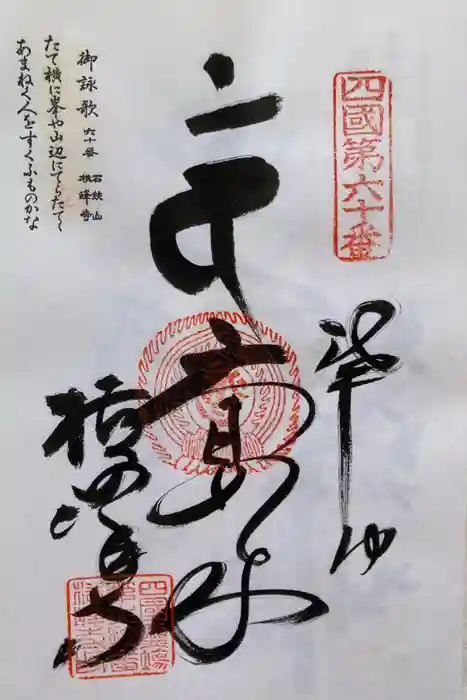 四國第六十番
奉拝
大日如来
横峰寺
御詠歌 六十番 石鈇山 横峰寺
たて横に峯や山辺にてらたてゝ
あまねく人をすくふものかな